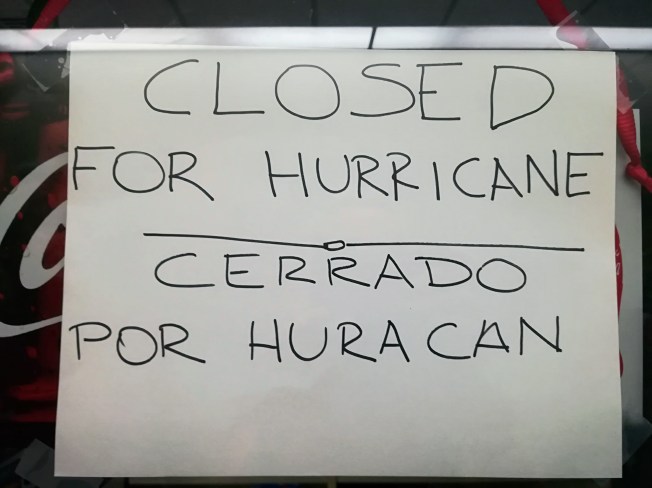 CLOSED
FOR HURRICANE
CERRADO
POR HURACAN